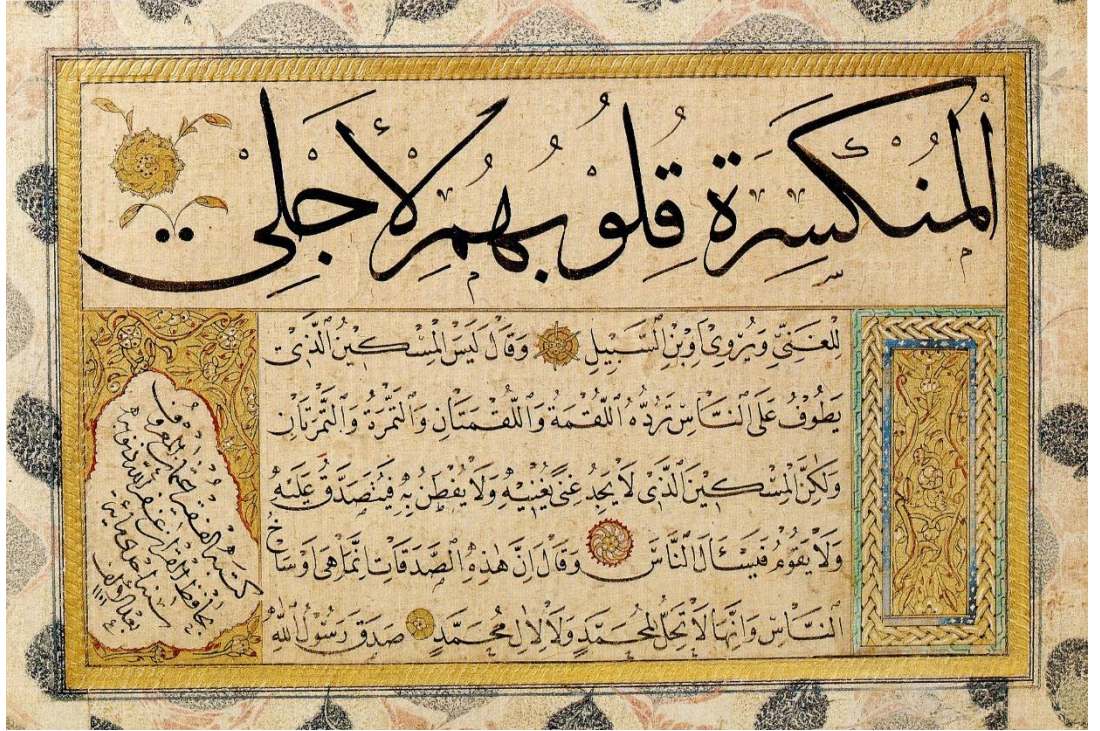 اَلْمُنْكَسِرَةِ قُلُوبُهُمْ لِأَجْلِي
لِلْغَنِيِّ وَيُرْوٰى اَوِبْنِ السَّبِيلِ وَقَالَ لَيْسَ الْمِسْكِينُ الَّذِى
يَطُوفُ عَلَى النَّاسِ تَرُدُّهُ اللُّقْمَةُ وَاللُّقْمَتَانِ وَالتَّمْرَةُ وَالتَّمْرَتَانِ
وَلٰكِنَّ الْمِسْكِينَ الَّذِى لَا يَجِدُ غِنًى يُغْنِيهِ وَلَا يُفْطَنُ بِهِ فَيُتَصَدَّقُ عَلَيْهِ
وَلَا يَقُومُ فَيَسْأَلَ النَّاسَ وَقَالَ اِنَّ هٰذِهِ الصَّدَقَاتِ اِنَّمَا هِىَ اَوْسَاخُ
النَّاسِ وَاِنَّهَا لَا تَحِلُّ لِمُحَمَّدٍ وَلَا لِاٰلِ مُحَمَّدٍ صَدَقَ رَسُولُ اللّٰهِ
كتبه الفقير عثمان المعروف
بحافظ القرآن غفر الله ذنوبه
سنة احدى ومائة
بعد الالف
١١٠١